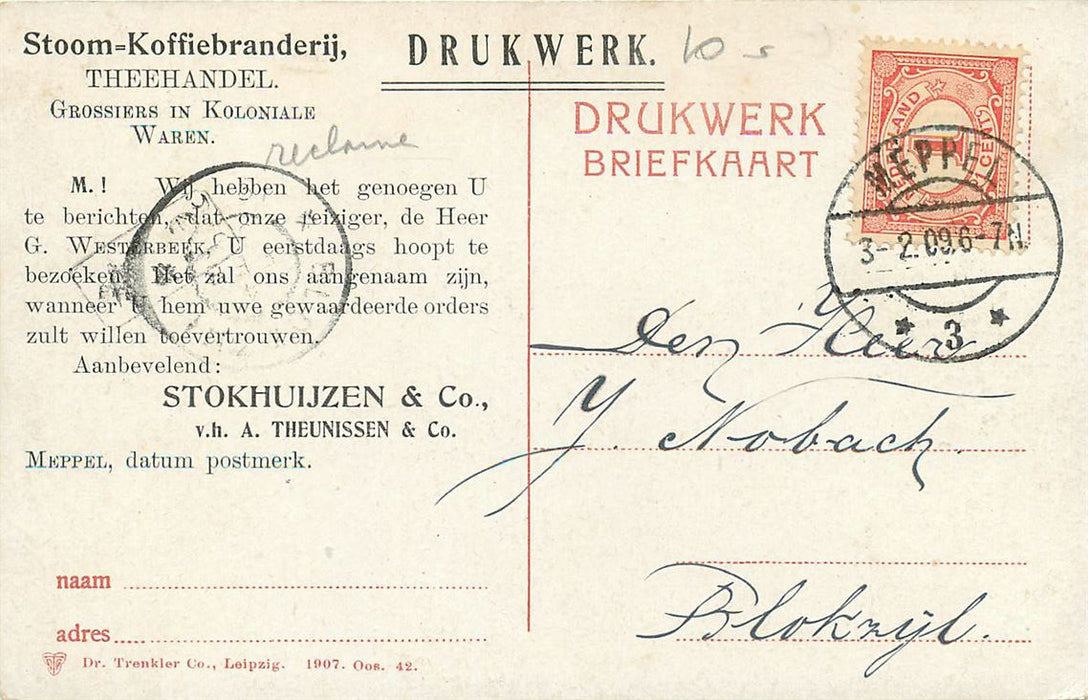 Stoom=Koffiebranderij,
THEEHANDEL.
GROSSIERS IN KOLONIALE
WAREN.
reclame
M. ! Wij hebben het genoegen U
te berichten, dat onze reiziger, de Heer
G. WESTERBEEK, U eerstdaags hoopt te
bezoeken. Het zal ons aangenaam zijn,
wanneer U hem uwe gewaardeerde orders
zult willen toevertrouwen.
Aanbevelend:
STOKHUIJZEN & Co.,
v.h. A. THEUNISSEN & Co.
MEPPEL, datum postmerk.
naam
adres
Dr. Trenkler Co., Leipzig. 1907. Oos. 42.
DRUKWERK.
DRUKWERK
BRIEFKAART
NEDERLAND
1
CENT
MEPPEL
3-2.09.6-7N.
3
Den Heer
J. Nobach.
Blokzijl.